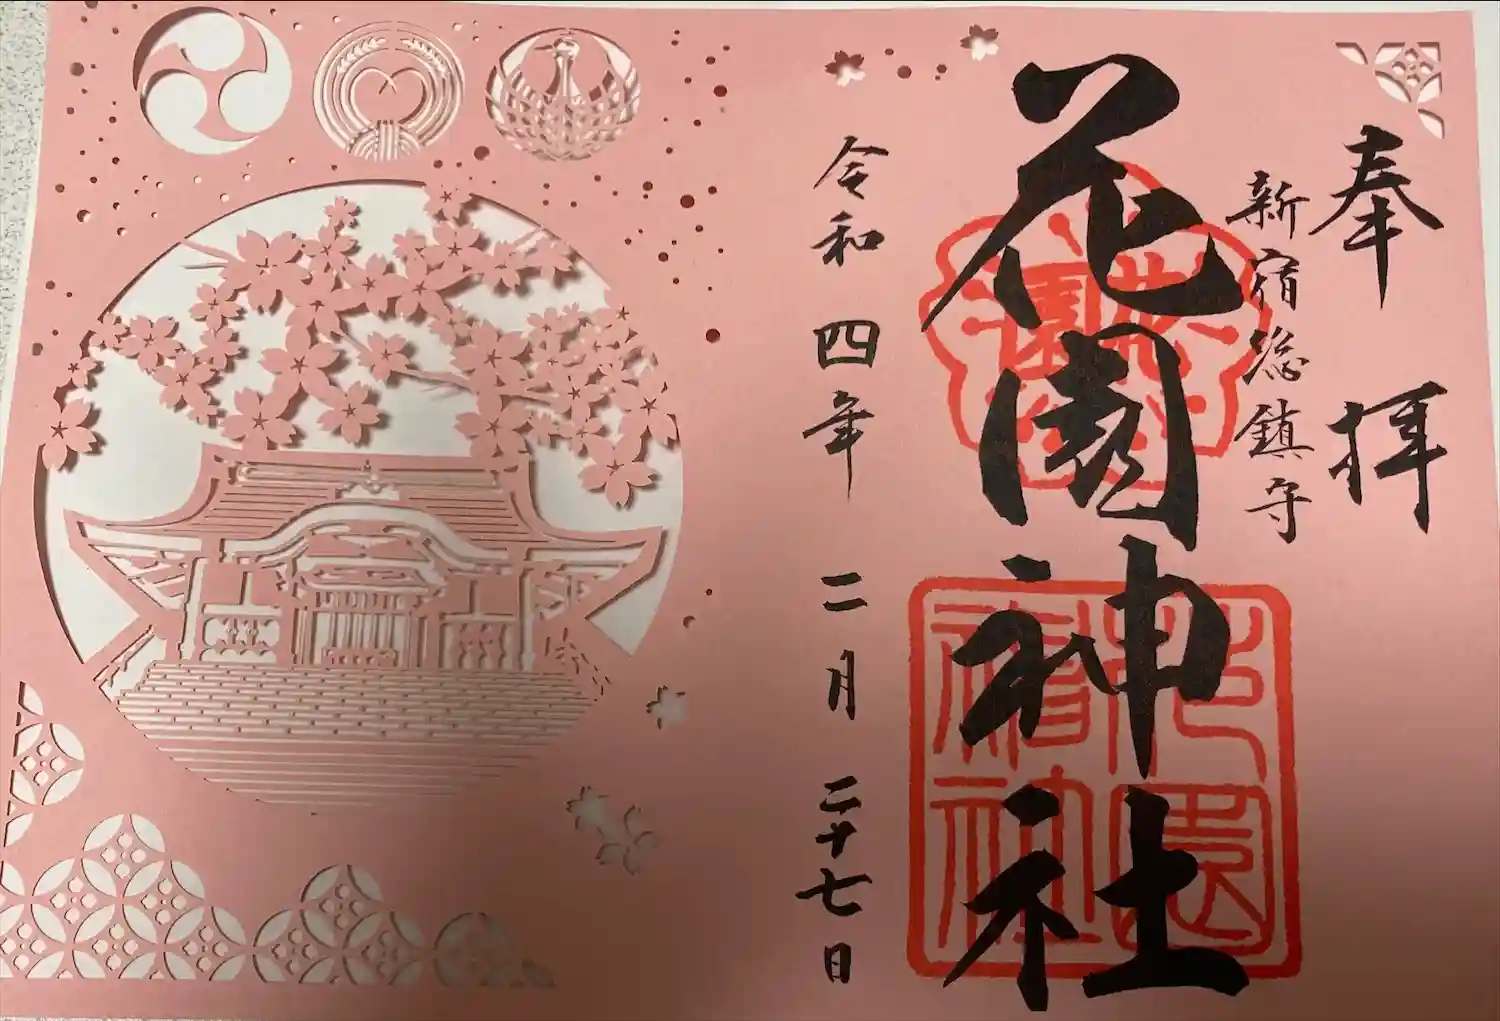 奉拝
新宿総鎮守
花園神社
令和四年二月二十七日
花園
花園神社